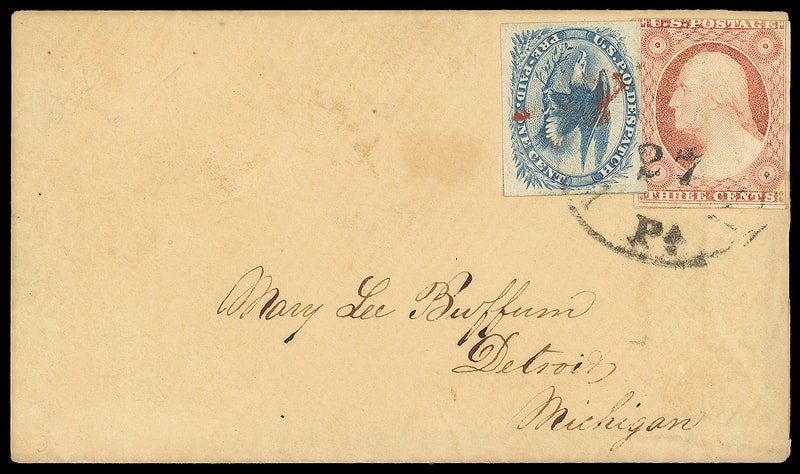 U.S.P.O. DESPATCH
PRE-PAID ONE CENT
U.S. POSTAGE
THREE CENTS
27
Pa
Mary Lee Buffum
Detroit
Michigan